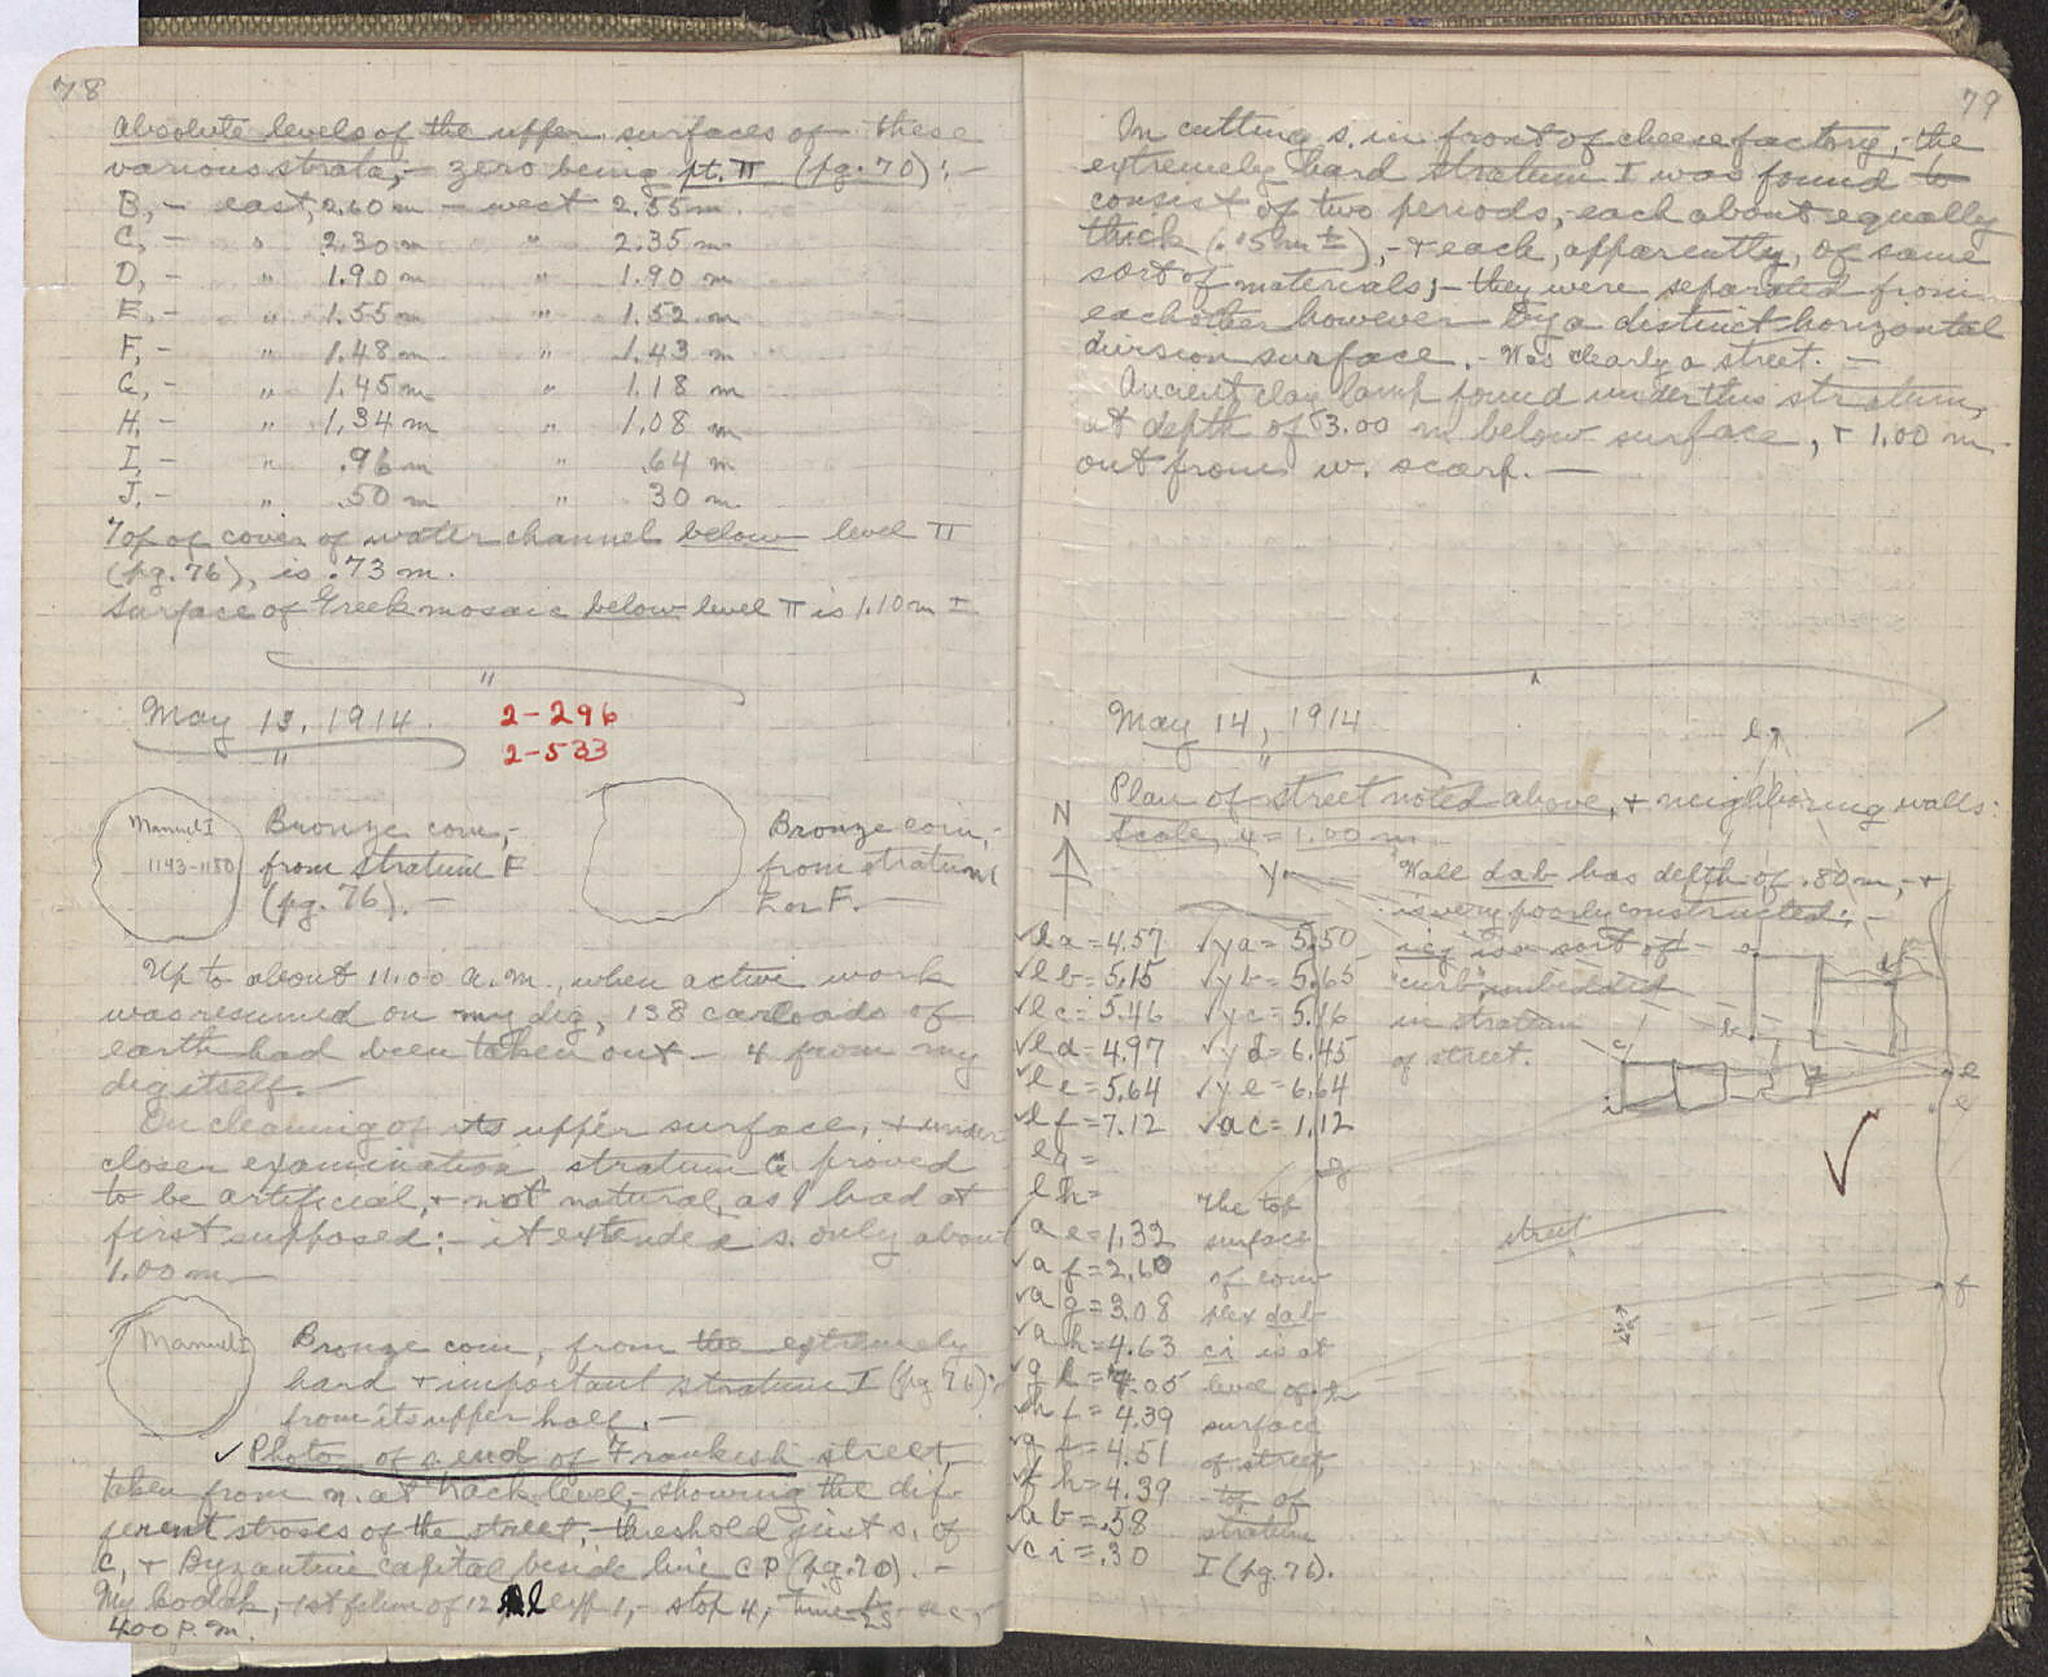 78
Absolute levels of the upper surfaces of these
various strata;- zero being pt. π (pg. 70):-
B,- east, 2.60 m - west 2.55 m.
C,- " 2.30 m " 2.35 m
D,- " 1.90 m " 1.90 m
E,- " 1.55 m " 1.52 m
F,- " 1.48 m " 1.43 m
G,- " 1.45 m " 1.18 m
H,- " 1.34 m " 1.08 m
I,- " .96 m " .64 m
J,- " .50 m " 30 m.
Top of cover of water channel below level π
(pg. 76), is .73 m.
Surface of Greek mosaic below level π is 1.10 m ±
"
May 13, 1914. 2-296
" 2-533
Manuel I
1143-1180
Bronze coin,-
from stratum F
(pg. 76).-
Bronze coin,-
from stratum
E or F.-
Up to about 11.00 a.m., when active work
was resumed on my dig, 138 carloads of
earth had been taken out - 4 from my
dig itself.-
On cleaning of its upper surface, + under
closer examination, stratum G proved
to be artificial, + not natural, as I had at
first supposed:- it extended s. only about
1.00 m-
Manuel I
Bronze coin, from the extremely
hard + important stratum I (pg 76);
from its upper half.-
✓ Photo of s. end of Frankish street,-
taken from n. at track level,- showing the dif-
ferent stroses of the street,- threshold just s. of
C, + Byzantine capital beside line CP (pg. 70).-
My kodak,- 1st film of 12, exp 1,- stop 4, time 1/25 sec,-
4.00 P.M.
79
In cutting s. in front of cheese factory,- the
extremely hard stratum I was found to
consist of two periods,- each about equally
thick (.15 m ±),- + each, apparently, of same
sort of materials;- they were separated from
each other however by a distinct horizontal
division surface.- Was clearly a street.-
Ancient clay lamp found under this stratum,
at depth of 3.00 m below surface, + 1.00 m.
out from w. scarp.-
May 14, 1914
"
l
Plan of street noted above, + neighboring walls:
Scale, 4 = 1.00 m
N
y
Wall dab has depth of .80 m,- +
is very poorly constructed:-
icj is a sort of
"curb", imbedded
in stratum
of street.
✓la = 4.57 ✓ya = 5.50
✓lb = 5.15 ✓yb = 5.65
✓lc = 5.46 ✓yc = 5.16
✓ld = 4.97 ✓yd = 6.45
✓le = 5.64 ✓ye = 6.64
✓lf = 7.12 ✓ac = 1.12
lg =
lh =
ae = 1.32
✓af = 2.60
✓ag = 3.08
✓ah = 4.63
✓gl = 7.05
✓hf = 4.39
✓gf = 4.51
✓fh = 4.39
✓ab = .58
✓ci = .30
The top
surface
of com-
plex dab
ci is at
level of
surface
of street,
- top of
stratum
I (pg. 76).
a
d
b
c
i
e
e
g
street
f